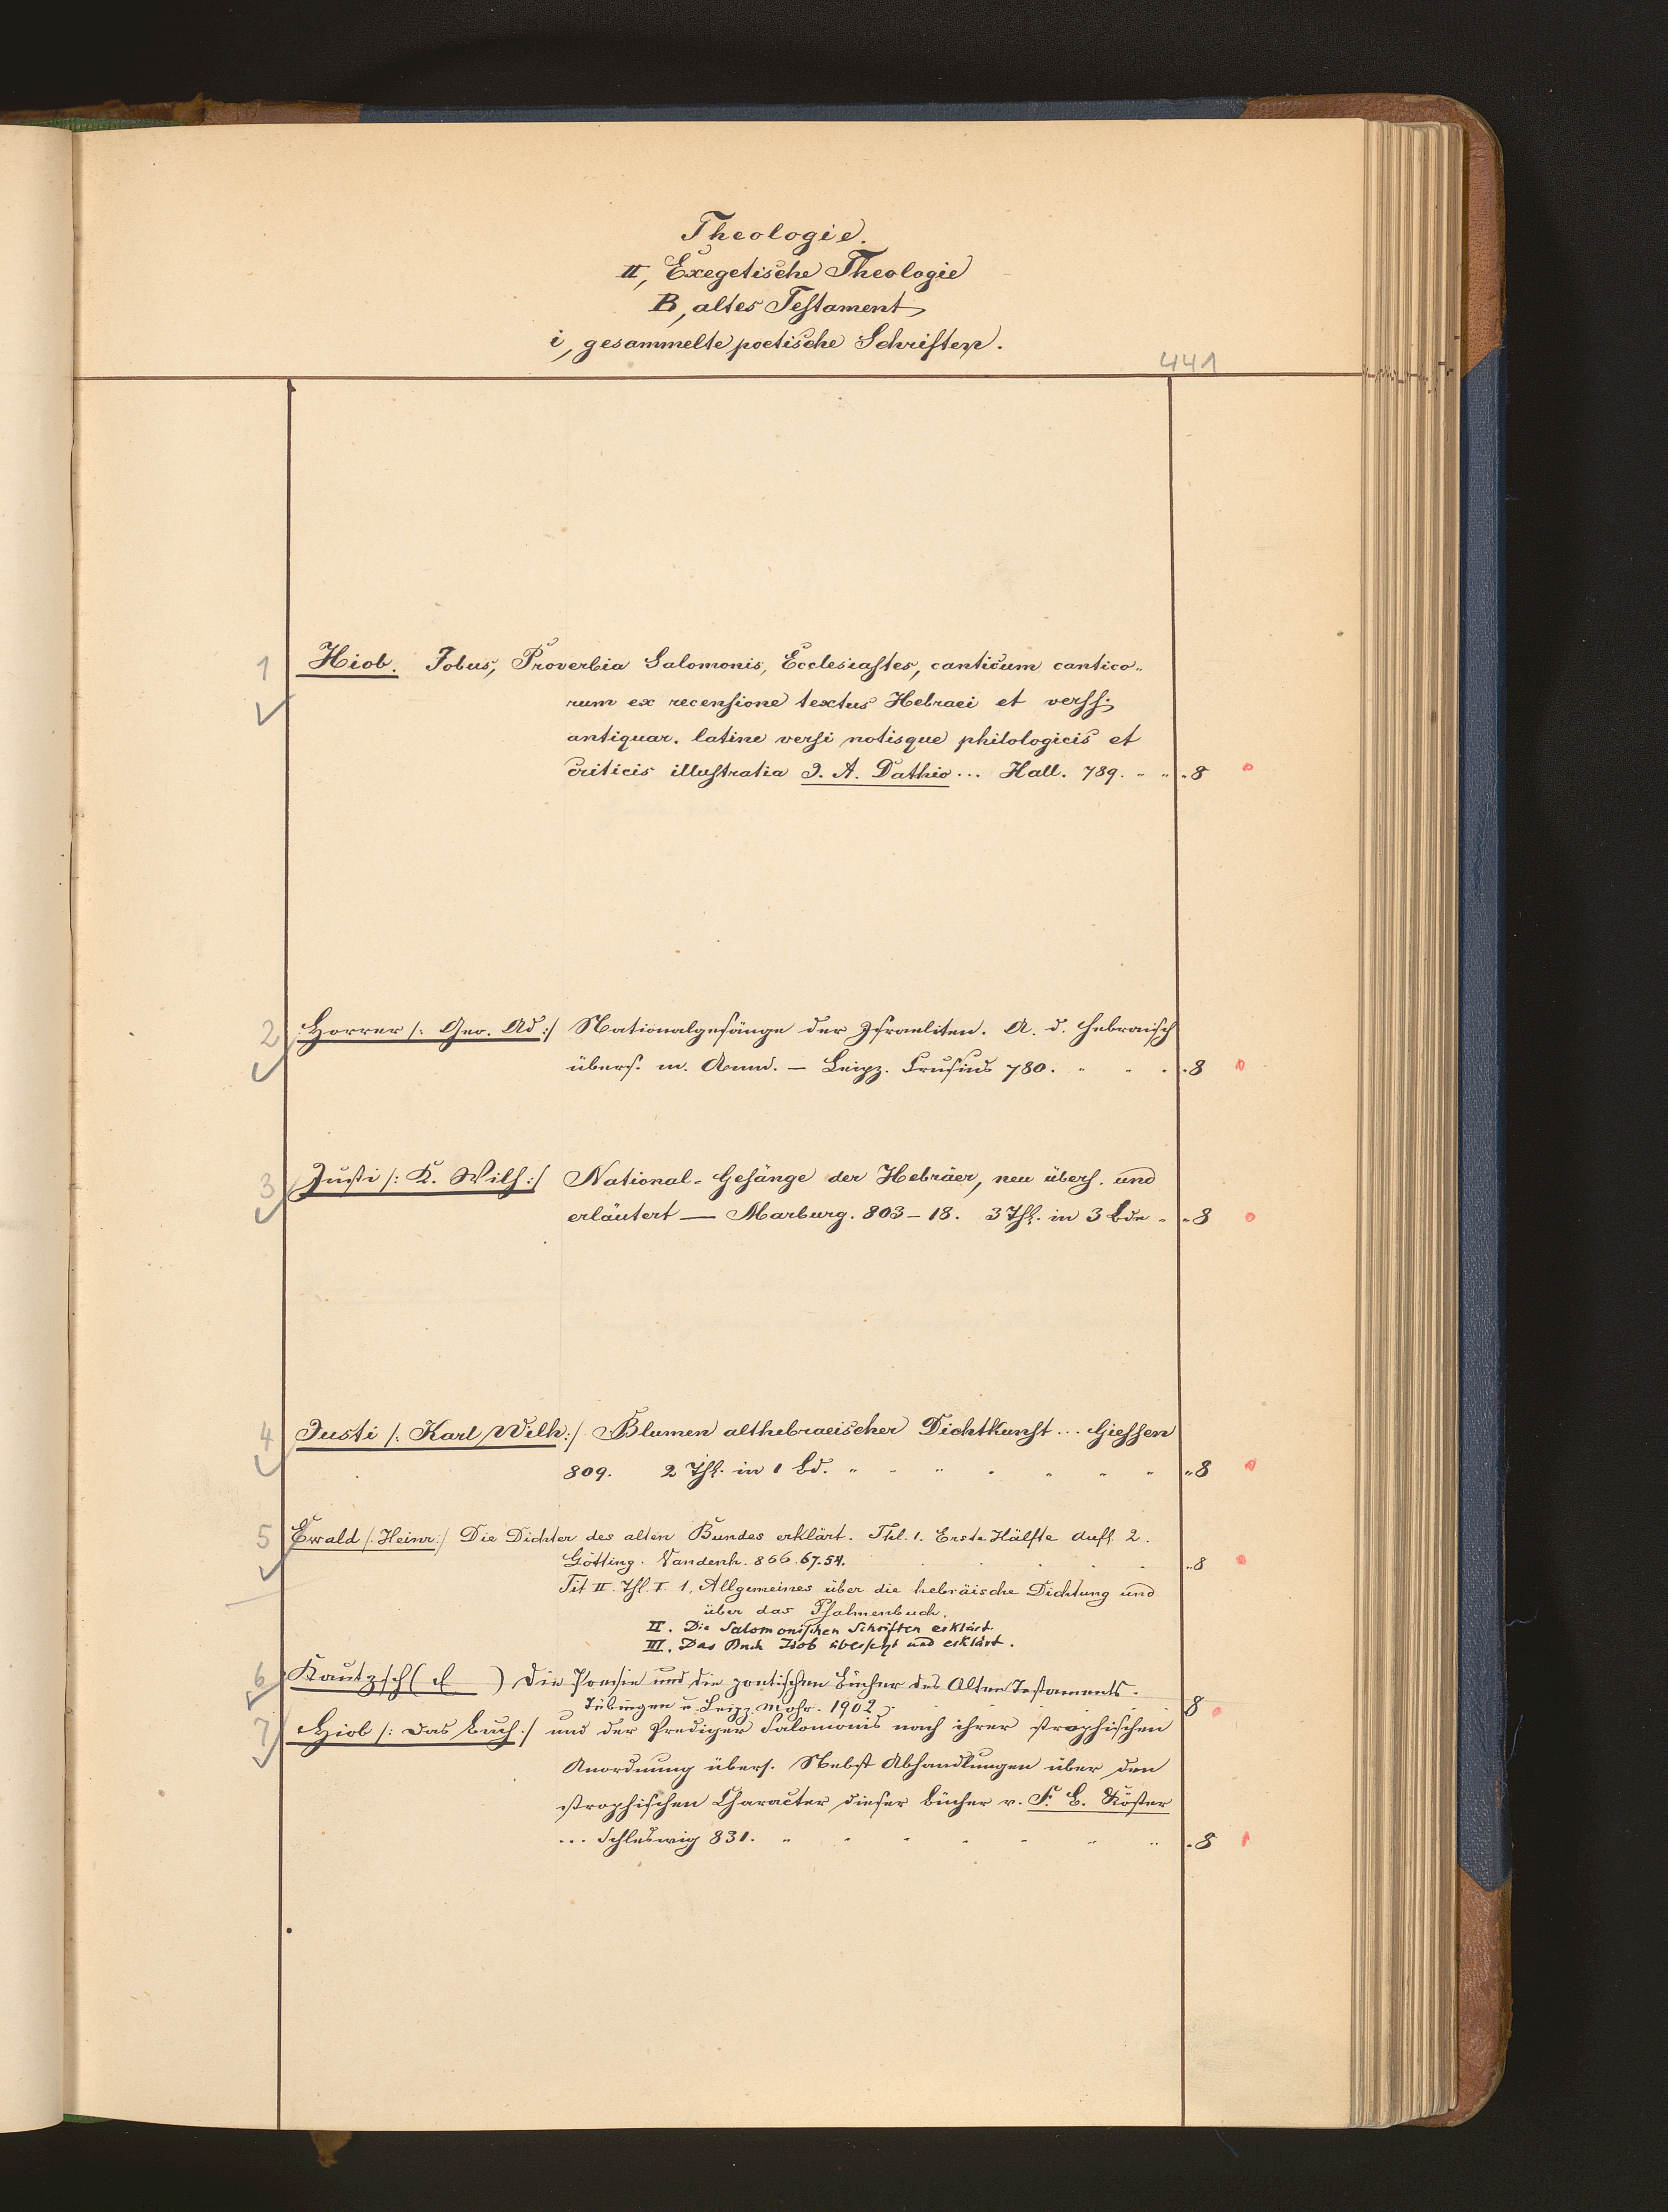 Theologie.
II, Exegetische Theologie
B, altes Testament
i, gesammelte poetische Schriften.
441
1 Hiob. Jobus, Proverbia Salomonis, Ecclesiastes, canticum cantico„
rum ex recensione textus Hebraei et verss.
antiquar. latine versi notisque philologicis et
criticis illustratia J. A. Dathio ... Hall. 789. „ „ „ 8
2 Horrer /: Geo. Ad :/ Nationalgesänge der Israeliten. A. d. Hebraisch
übers. m. Anm. — Leipz. Crusius 780. „ „ „ 8
3 Justi /: K. Wilh :/ National-Gesänge der Hebräer, neu übers. und
erläutert — Marburg. 803–18. 3 Thl. in 3 Bde „ „ 8
4 Justi /: Karl Wilh :/ Blumen althebraeischer Dichtkunst ... Giessen
809. 2 Thl. in 1 Bd. „ „ „ „ „ „ „ „ 8
5 Ewald /: Heinr :/ Die Dichter des alten Bundes erklärt. Thl. 1. Erste Hälfte Aufl. 2.
Götting. Vandenh. 866. 67. 54. „ 8
Tit II. Thl. I. 1, Allgemeines über die hebräische Dichtung und
über das Psalmenbuch.
II. Die Salomonischen Schriften erklärt.
III. Das Buch Ijob übersetzt und erklärt.
6 Kautzsch ( E ) Die Poesie und die poetischen Bücher des Alten Testaments.
Tübingen u. Leipz. Mohr. 1902 8
7 Hiob /: Das Buch :/ und der Prediger Salomonis nach ihrer strophischen
Anordnung übers. Nebst Abhandlungen über den
strophischen Character dieser Bücher v. F. B. Köster
... Schleswig 831. „ „ „ „ „ „ „ „ 8